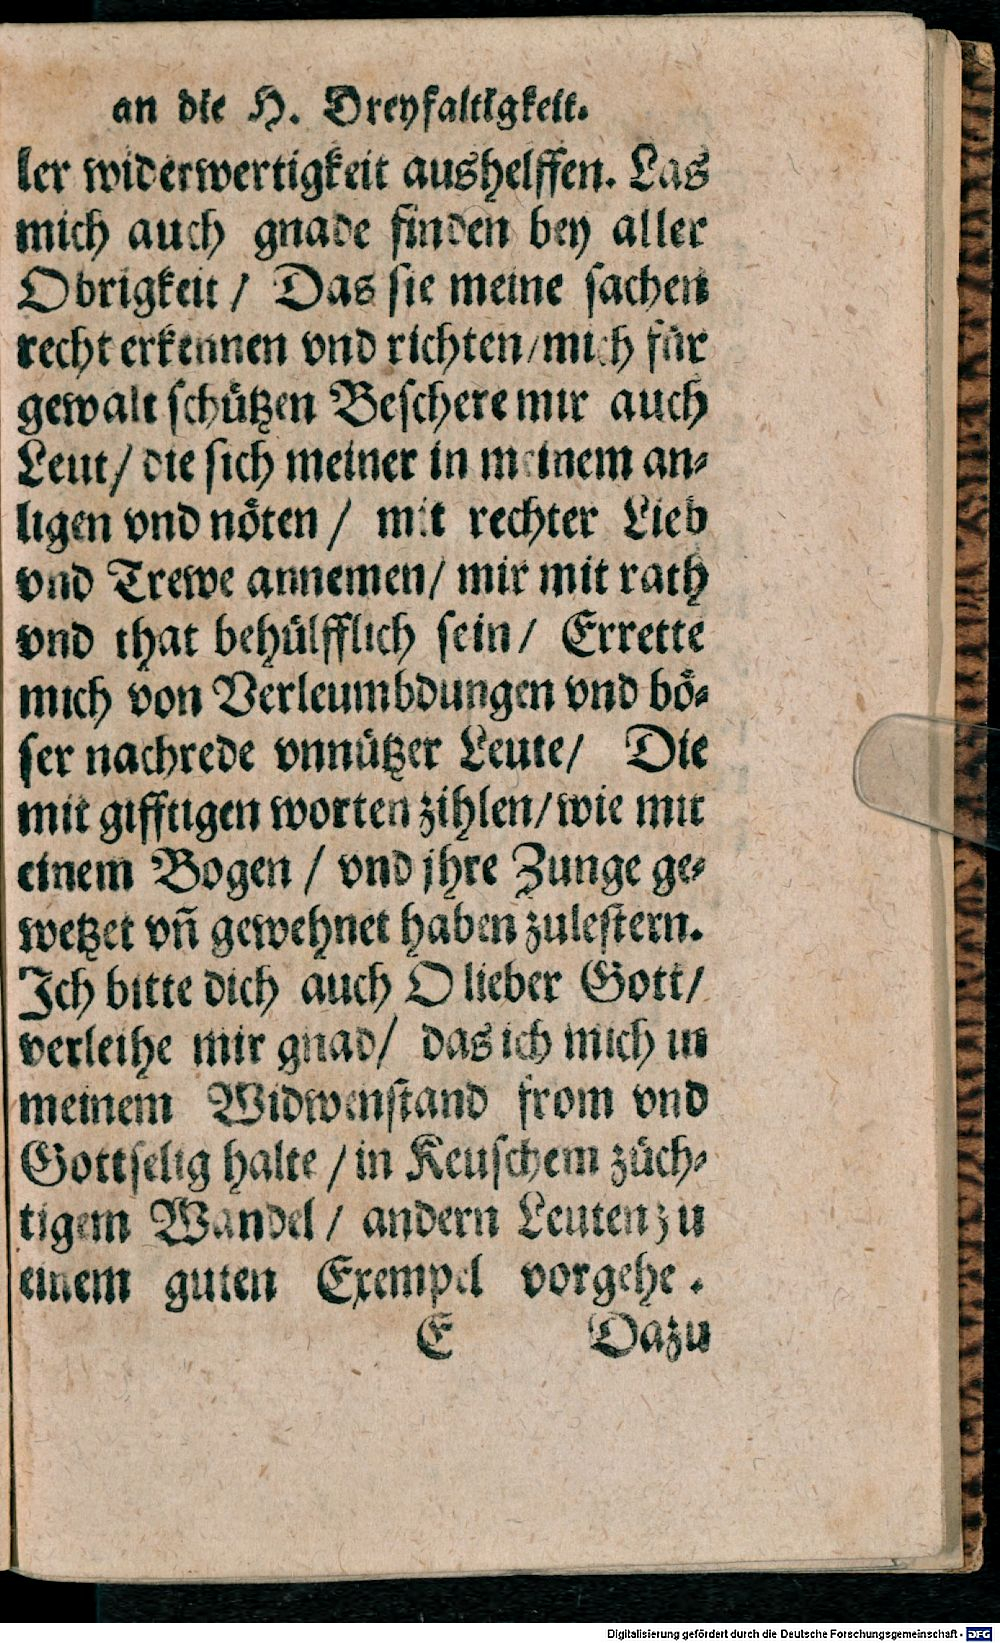 an die H. Dreyfaltigkeit.
ler widerwertigkeit aushelffen. Las
mich auch gnade finden bey aller
Obrigkeit / Das sie meine sachen
recht erkennen vnd richten/mich für
gewalt schützen Beschere mir auch
Leut/ die sich meiner in meinem an-
ligen vnd nöten / mit rechter Lieb
vnd Trewe annemen/ mir mit rath
vnd that behülfflich sein/ Errette
mich von Verleumbdungen vnd bö-
ser nachrede vnnützer Leute/ Die
mit gifftigen worten zihlen/wie mit
einem Bogen / vnd jhre Zunge ge-
wetzet vñ gewehnet haben zulestern.
Ich bitte dich auch O lieber Gott/
verleihe mir gnad/ das ich mich in
meinem Widwenstand from vnd
Gottselig halte / in Keuschem züch-
tigem Wandel/ andern Leuten zu
einem guten Exempel vorgehe.
E Dazu
Digitalisierung gefördert durch die Deutsche Forschungsgemeinschaft - DFG